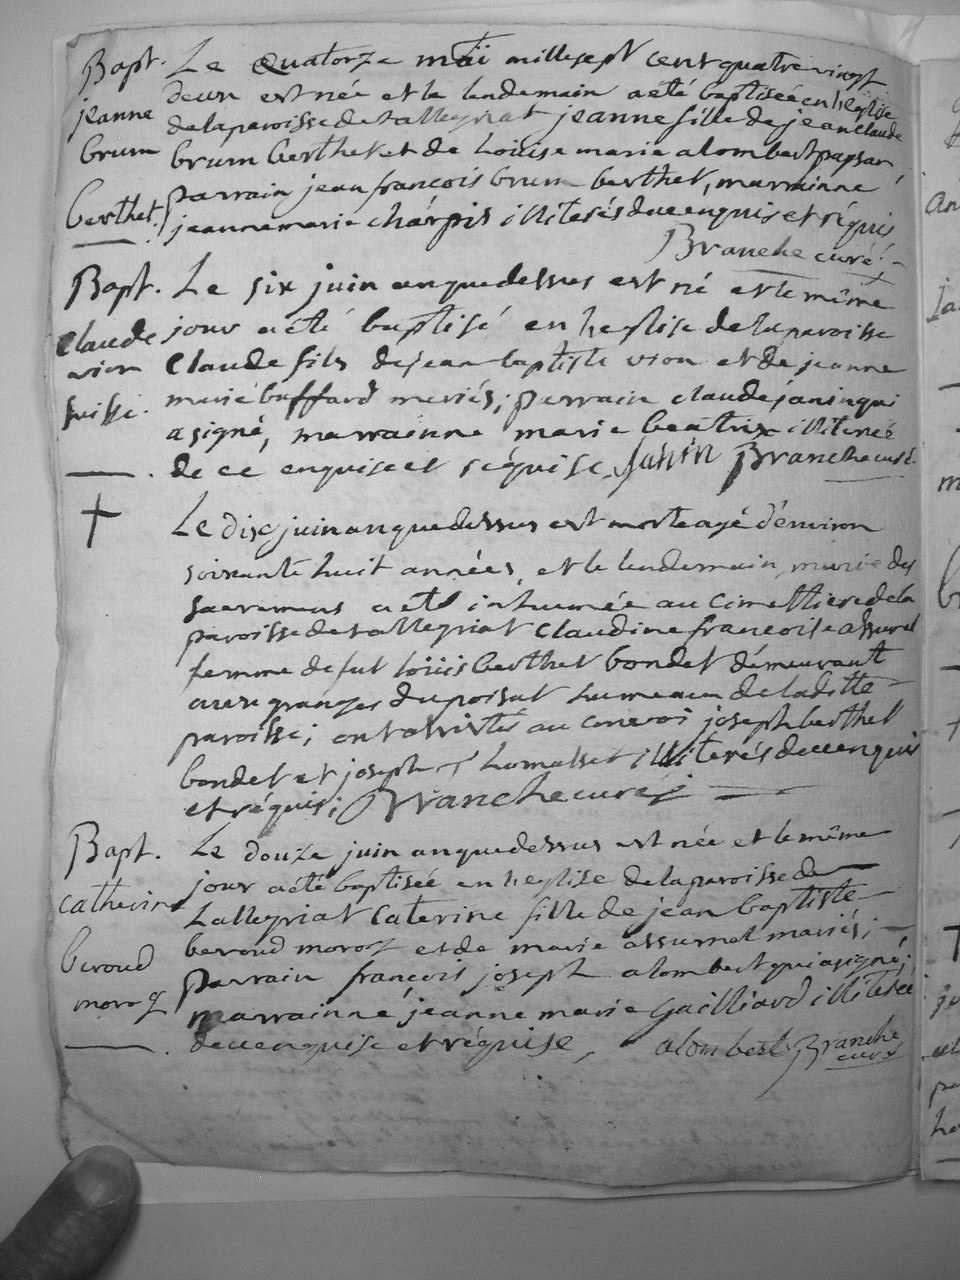 Bapt. Le quatorze mai mille sept cent quatre vingt
deux est née et le lendemain a été baptisée en l'heglise
jeanne de la paroisse de tallegriat jeanne fille de jean claude
brum brum berthet et de loüise marie alombert papsan,
berthet. parrain jean françois brum berthet, marrainne
jeanne marie charpis illiterés de ce enquis et réquis
Branche curé
Bapt. Le six juin an que dessus est né et le même
Claude jour a été baptisé en heglise de la paroisse
vion Claude fils de jean baptiste vion et de jeanne
suisse. marie buffard mariés; parrain claude janin qui
a signé, marrainne marie beatrix illiterée
de ce enquise et réquise. Janin Branche curé.
Le dix juin an que dessus est morte agé d'environ
soixante huit années, et le lendemain, munie des
sacremens a eté inhumée au cimettiere de la
paroisse de tallegriat Claudine francoise assurel
femme de fut loüis berthet bondet démeurant
aux granges du poisat hameau de la ditte
paroisse; ont assistés au convoi joseph berthet
bondet et joseph thomasset illiterés de ce enquis
et réquis; Branche curé
Bapt. Le douze juin an que dessus est née et le même
catherine jour a été baptisée en heglise de la paroisse de
Lallegriat Caterine fille de jean baptiste
beroud beroud moroz et de marie assurnet mariés;
moroz parrain françois joseph alombert qui a signé;
marrainne jeanne marie Gailliard illiterée
de ce enquise et réquise, alombert Branche
curé